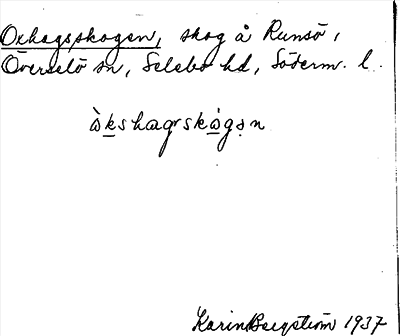 Oxhagsskogen, skog å Runsö,
Överselö sn, Selebo hd, Söderm. l.
ὰkshagrskὰgən
Karin Bergström 1937